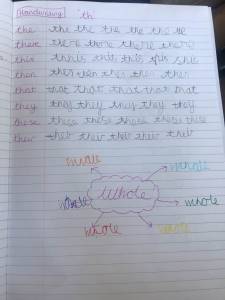 Handwriting 'th'
the the the the the the the
there there there there there
this this this this
then then then then
that that that that that that
they they they they they
these these these these these
their their their their their
whole whole
whole whole whole
whole whole